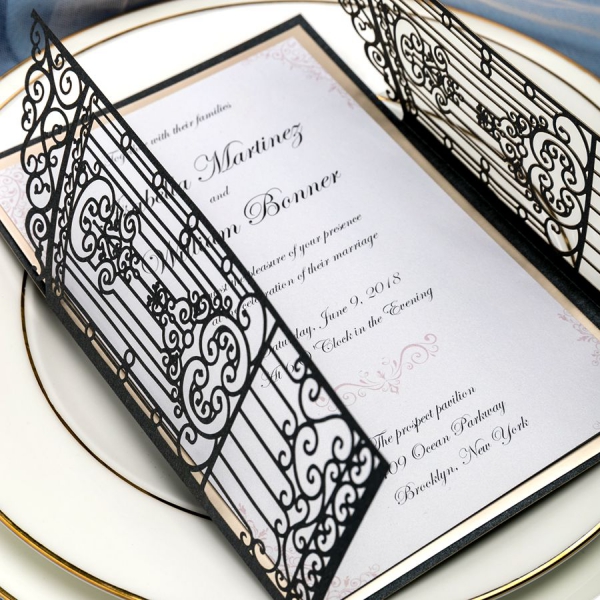 Together with their families
Martinez
and
William Bonner
pleasure of your presence
celebration of their marriage
Saturday, June 9, 2018
At Clock in the Evening
The prospect pavilion
09 Ocean Parkway
Brooklyn, New York